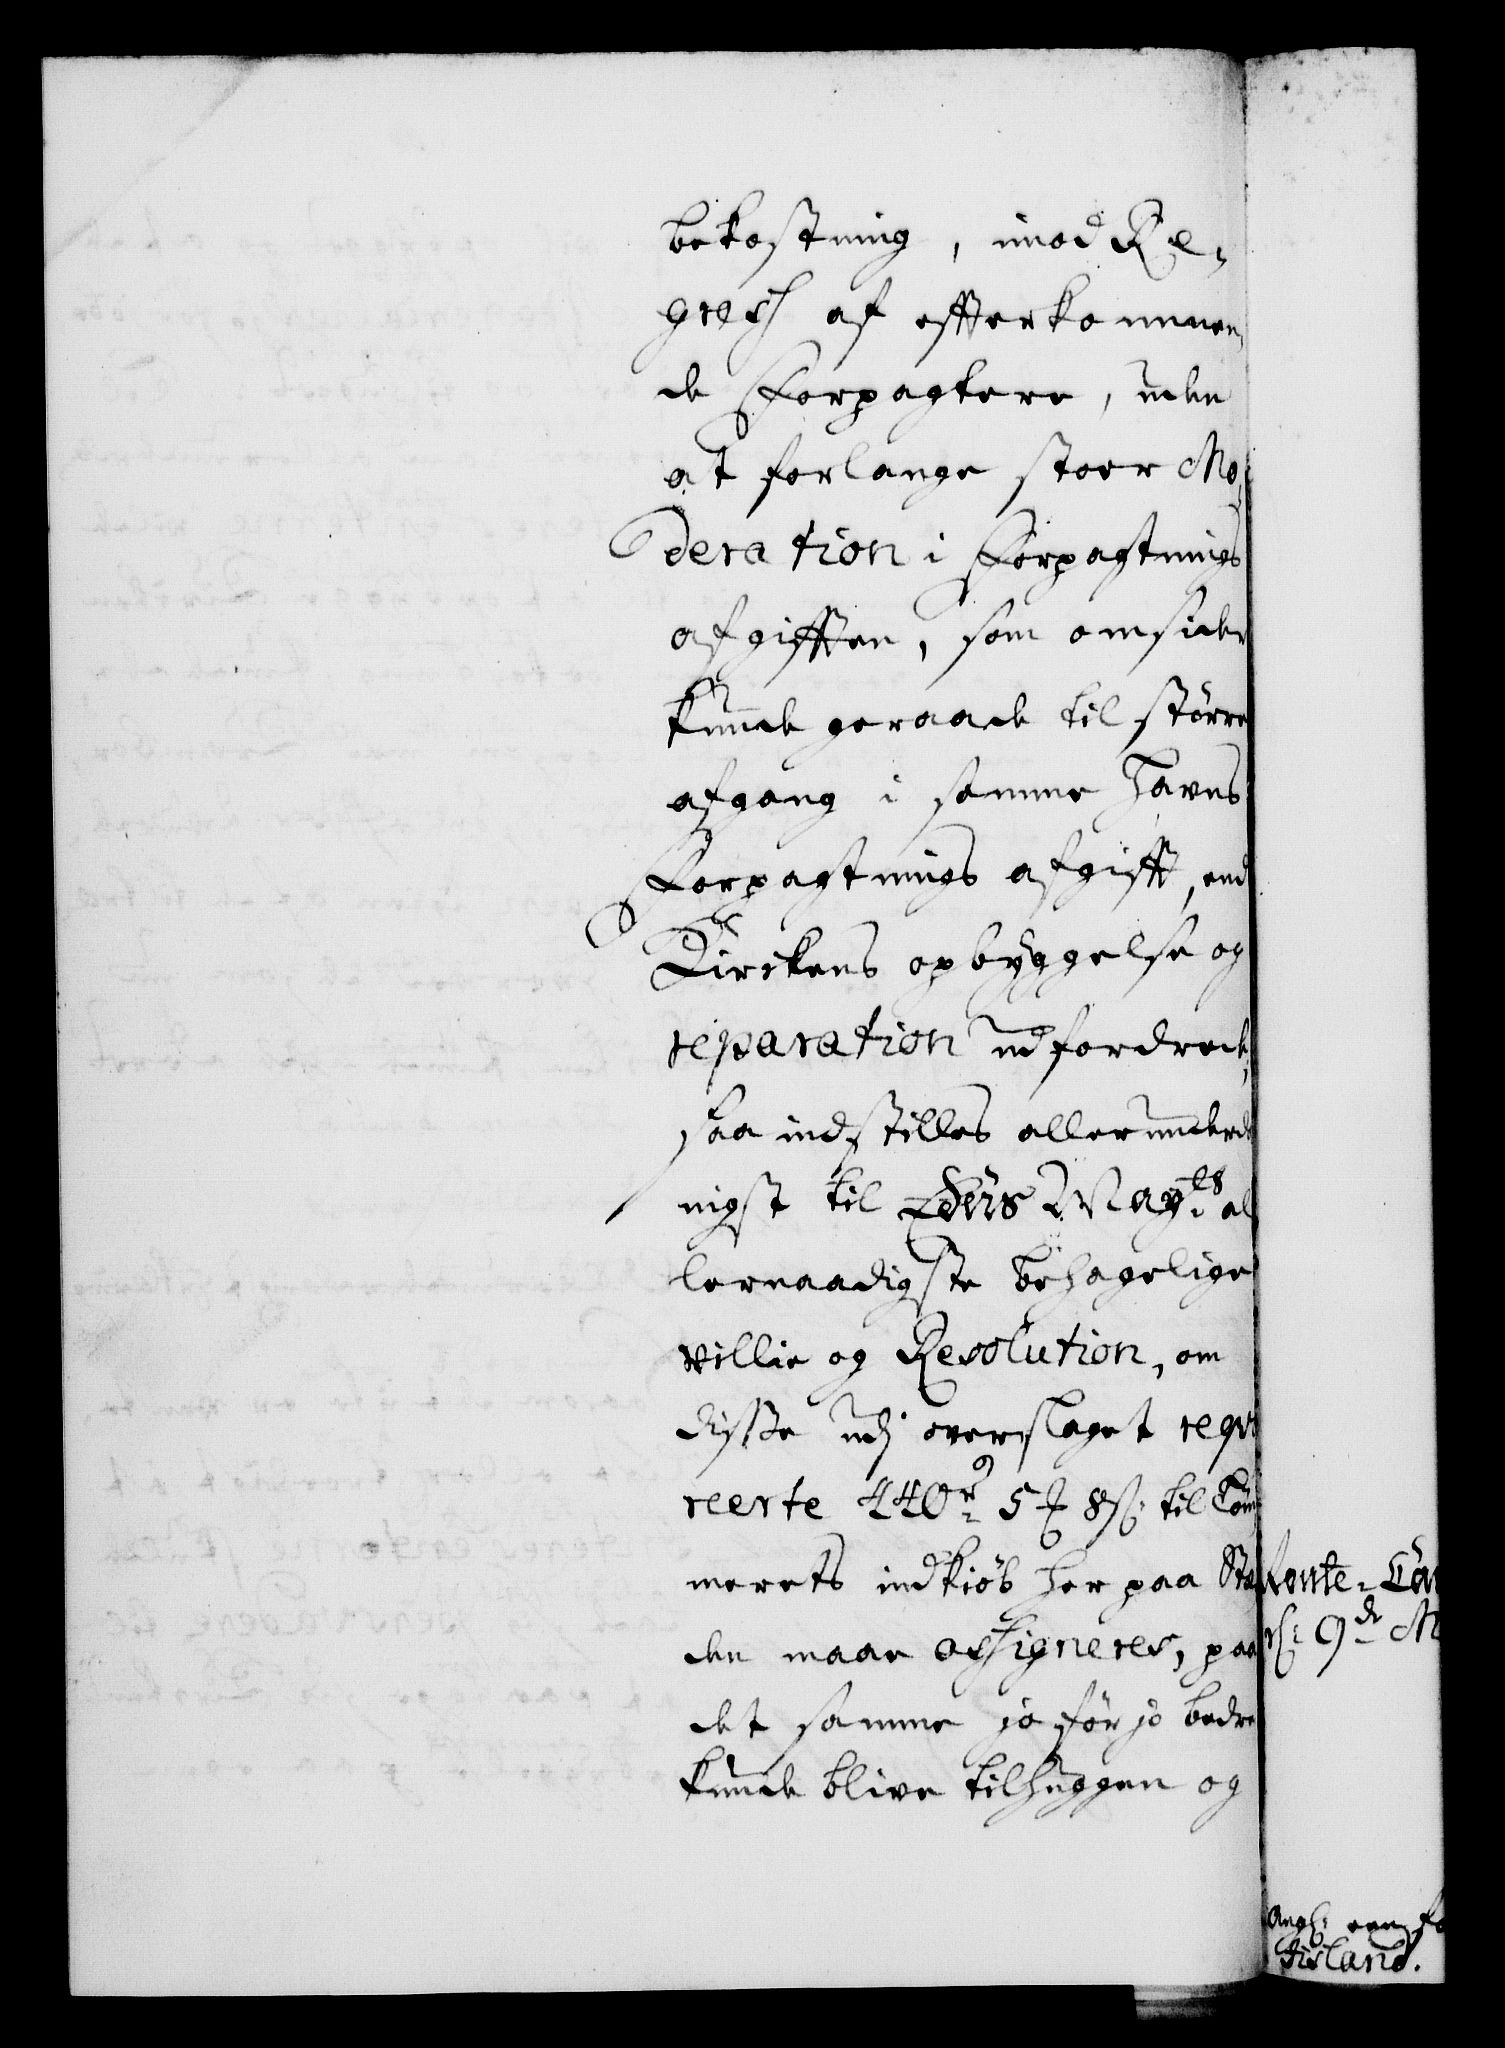 bekostning, imod Re-
gress af effterkommen,
de Forpagtere, uden
at forlange stoer Mo,
deration i Forpagtnings
afgifften, som omsider
kunde geraade til större
afgang i samme hafnes
Forpagtnings afgifft, end
Kirckens opbÿggelse og
reparation udfordrede,
saa indstilles allerunderd
nigst til Eders Mayts al
lernaadigste behagelige
villie og Resolution, om
disse udj overslaget requi
reerte 440r 5 8 til Töm
merets indkiöb her paa Sta
den maae assigneres, paa
det samme jo för jo bedre
kunde blive tilhuggen og
Rente-Cam
9de M
Angl: een fo
Jisland.